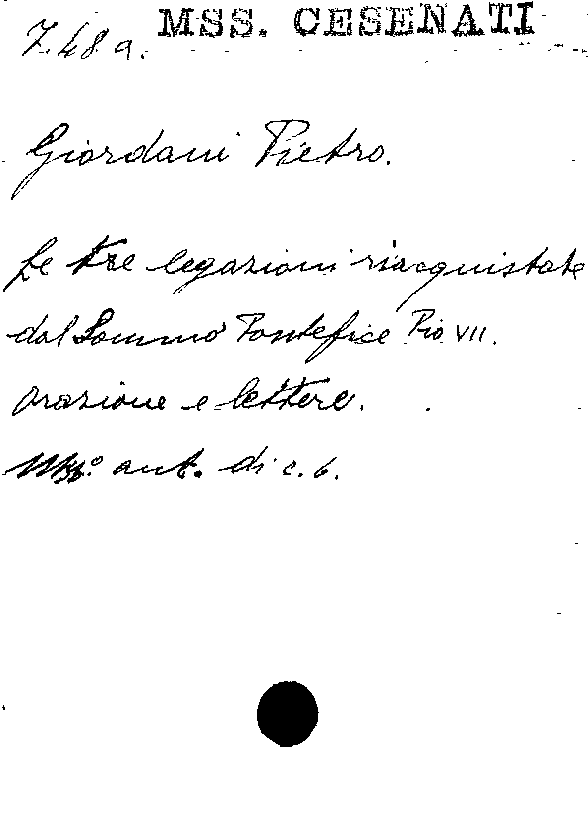 MSS. CESENATI
7.48 a.
Giordani Pietro.
Le tre legazioni riacquistate
dal Sommo Pontefice Pio VII.
orazione e lettere.
Mss.° aut. di c. 6.